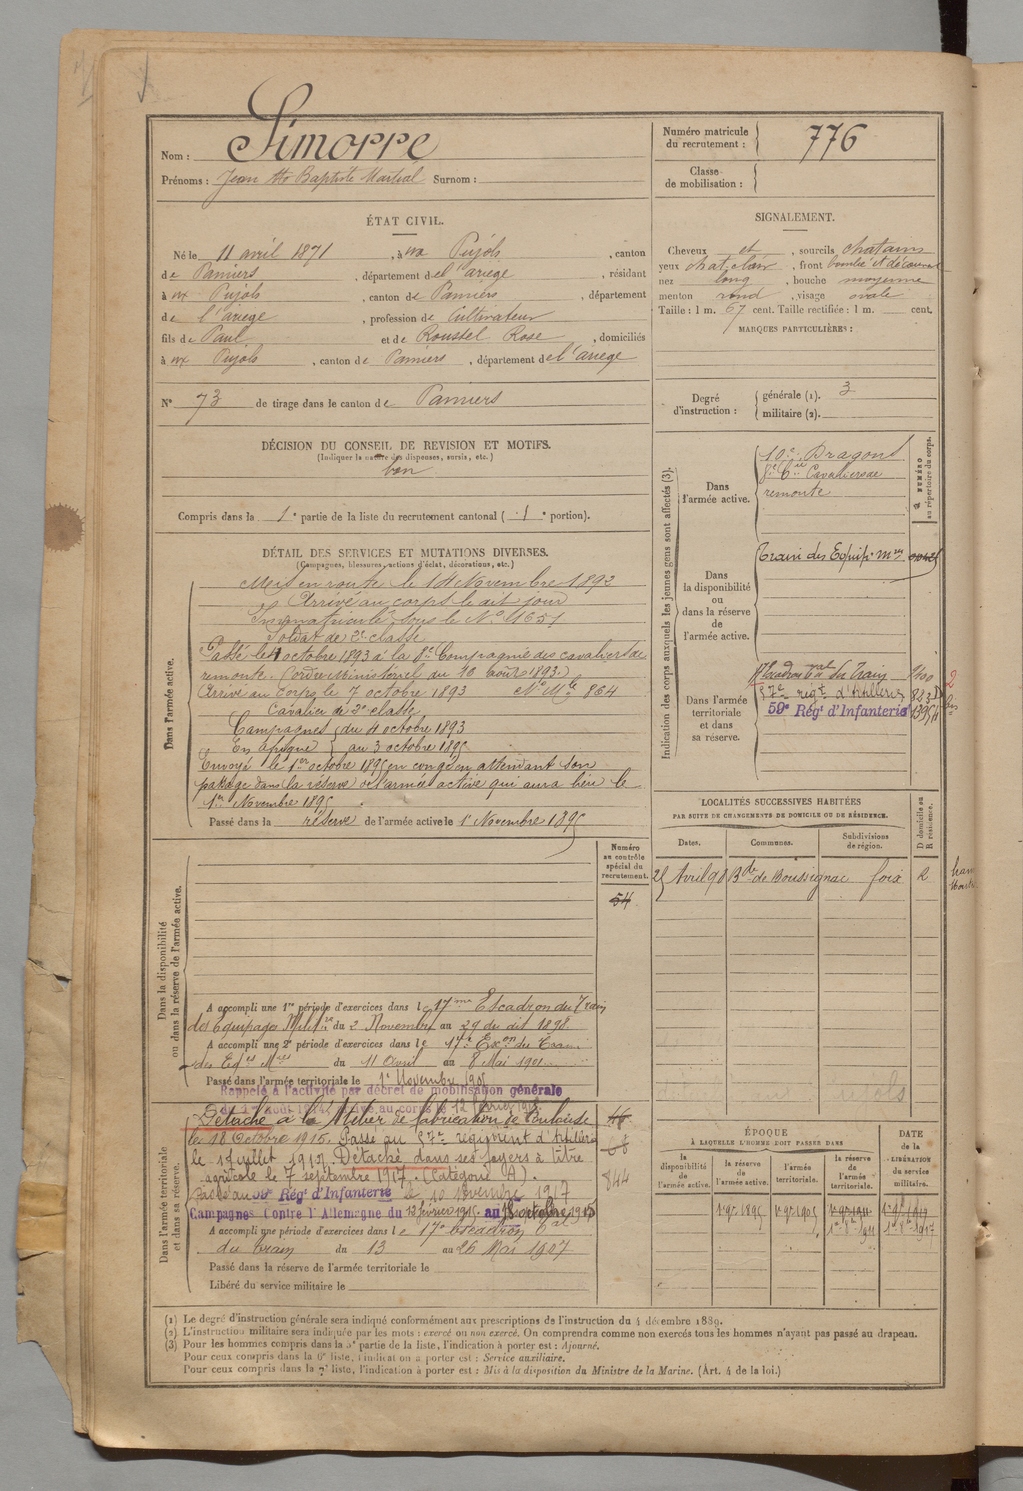 Nom : Simorre
Prénoms : Jean Baptiste Martial Surnom :
Numéro matricule du recrutement : 776
Classe de mobilisation :
ÉTAT CIVIL.
Né le 11 avril 1871 , à Pujols , canton
de Pamiers , département de l'ariege , résidant
à Pujols , canton de Pamiers , département
de l'ariege , profession de Cultivateur
fils de Paul et de Roustel Rose , domiciliés
à Pujols , canton de Pamiers , département de l'ariege
N° 73 de tirage dans le canton de Pamiers
SIGNALEMENT.
Cheveux et , sourcils chatains
yeux chat. clair , front bombé et découvert
nez long , bouche moyenne
menton rond , visage ovale
Taille : 1 m. 67 cent. Taille rectifiée : 1 m. cent.
MARQUES PARTICULIÈRES :
Degré d'instruction : générale (1). 3
militaire (2).
DÉCISION DU CONSEIL DE REVISION ET MOTIFS.
(Indiquer la nature des dispenses, sursis, etc.)
bon
Compris dans la 1e partie de la liste du recrutement cantonal ( 1e portion).
DÉTAIL DES SERVICES ET MUTATIONS DIVERSES.
(Campagnes, blessures, actions d'éclat, décorations, etc.)
Dans l'armée active.
Mis en route le Novembre 1892
Arrivé au corps le dit jour
Immatriculé sous le N° 1651
Soldat de 2e classe
Passé le 4 octobre 1893 à la 8e Compagnie des cavaliers de
remonte. (ordre Ministériel du 10 août 1893.)
Arrivé au corps le 7 octobre 1893 N° Mle 864
Cavalier de 2e classe
Campagnes du 4 octobre 1893
En Afrique au 3 octobre 1895
Envoyé le 1er octobre 1895 en congé en attendant son
passage dans la réserve de l'armée active qui aura lieu le
1er Novembre 1895
Passé dans la réserve de l'armée active le 1er Novembre 1895
Indication des corps auxquels les jeunes gens sont affectés (3).
NUMÉRO au répertoire du corps.
Dans l'armée active.
10e Dragons
8e Cie Cavaliers de
remonte
Dans la disponibilité ou dans la réserve de l'armée active.
Train des Equip. Mres
Dans l'armée territoriale et dans sa réserve.
17e Escadron tal du Train 1400
57e regt d'Artillerie
59e Régt d'Infanterie
LOCALITÉS SUCCESSIVES HABITÉES
PAR SUITE DE CHANGEMENTS DE DOMICILE OU DE RÉSIDENCE.
Dates. Communes. Subdivisions de région. D domicile ou R résidence.
25 Avril 98 Bde de Boussignac foix R
Numéro au contrôle spécial du recrutement.
54
Dans la disponibilité ou dans la réserve de l'armée active.
A accompli une 1re période d'exercices dans le 17me Escadron du Train
des Equipages Militres du 2 Novembre au 29 du dit 1898
A accompli une 2e période d'exercices dans le 17e Eson du Train
des Eqges Mres du 11 Avril au 8 Mai 1901
Passé dans l'armée territoriale le 1er Novembre 1905
Rappelé à l'activité par décret de mobilisation générale
du août 1914 arrivé au corps le 12 février 1915
Dans l'armée territoriale et dans sa réserve.
Détaché à l'Atelier de fabrication de Toulouse
le 18 Octobre 1915. Passé au 57e régiment d'Artillerie
le 1 Juillet 1917. Détaché dans ses foyers à titre
agricole le 7 septembre 1917. (Catégorie A).
Passé au 59e Régt d'Infanterie le 10 Novembre 1917
Campagnes Contre l'Allemagne du 13 février 1915 au 18 octobre 1915
A accompli une période d'exercices dans le 17e escadron tal
du train du 13 au 26 Mai 1907
Passé dans la réserve de l'armée territoriale le
Libéré du service militaire le
68
844
ÉPOQUE
À LAQUELLE L'HOMME DOIT PASSER DANS
la disponibilité de l'armée active. la réserve de l'armée active. l'armée territoriale. la réserve de l'armée territoriale.
DATE de la LIBÉRATION du service militaire.
1er 9bre 1895 1er 9bre 1905 1er 9bre 1911 1er 9bre 1917
1er 8bre 1911 1er 8bre 1917
(1) Le degré d'instruction générale sera indiqué conformément aux prescriptions de l'instruction du 4 décembre 1889.
(2) L'instruction militaire sera indiquée par les mots : exercé ou non exercé. On comprendra comme non exercés tous les hommes n'ayant pas passé au drapeau.
(3) Pour les hommes compris dans la 5e partie de la liste, l'indication à porter est : Ajourné.
Pour ceux compris dans la 6e liste, l'indication à porter est : Service auxiliaire.
Pour ceux compris dans la 7e liste, l'indication à porter est : Mis à la disposition du Ministre de la Marine. (Art. 4 de la loi.)